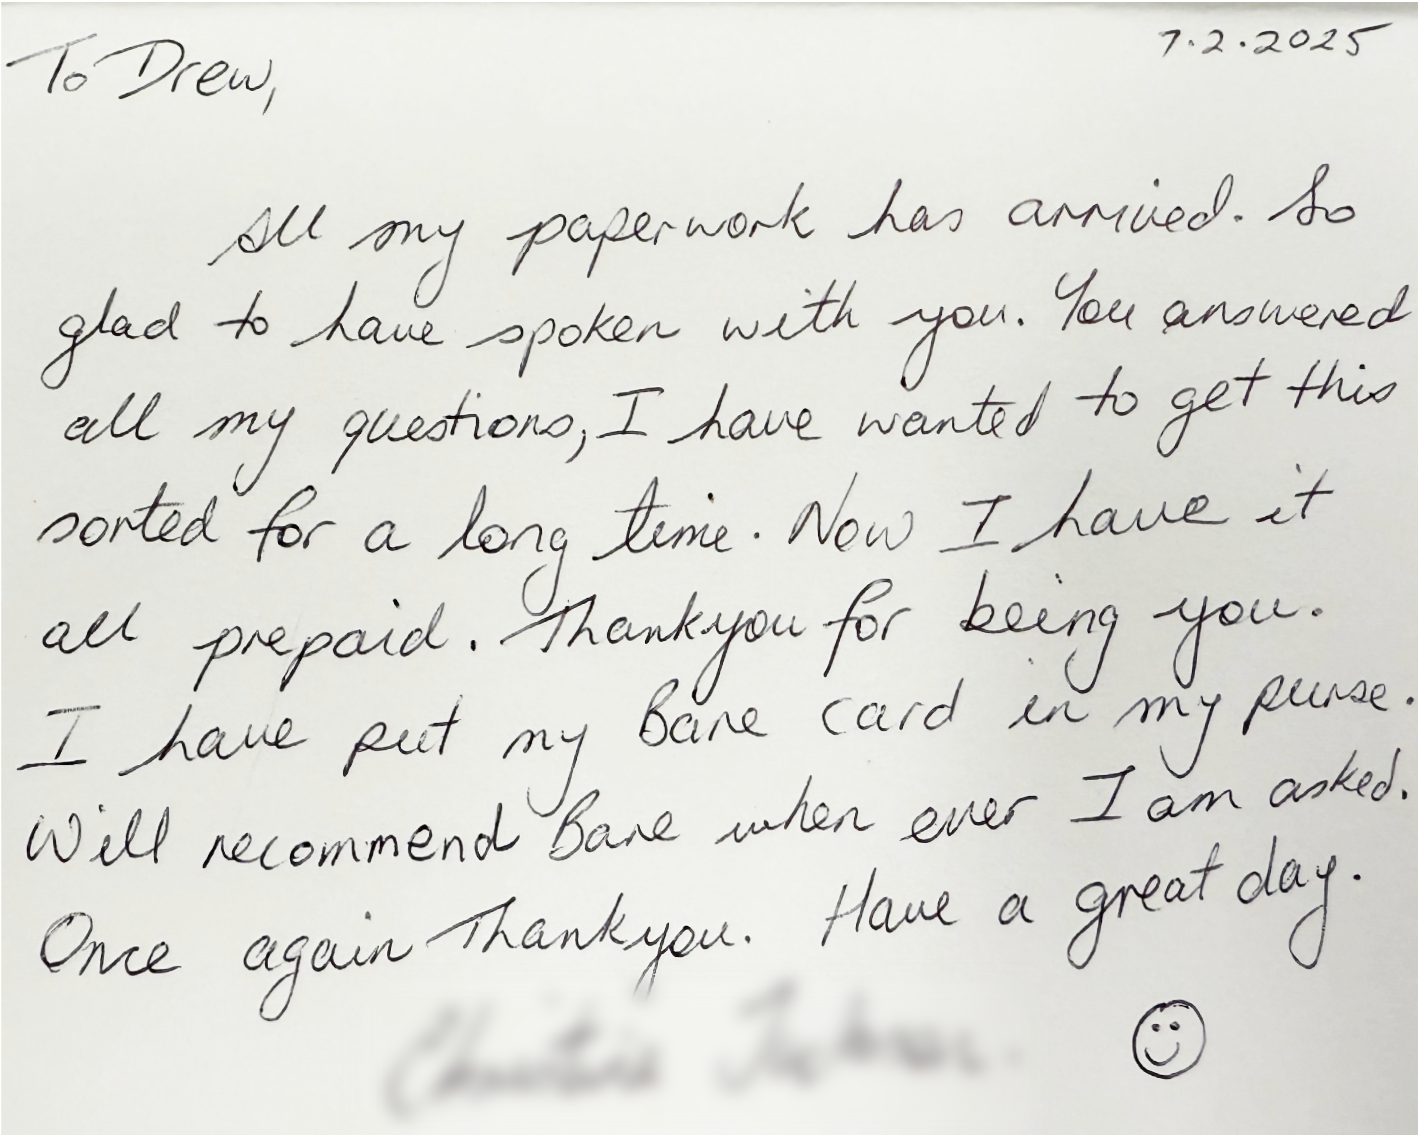 7.2.2025
To Drew,
All my paperwork has arrived. So
glad to have spoken with you. You answered
all my questions, I have wanted to get this
sorted for a long time. Now I have it
all prepaid. Thankyou for being you.
I have put my Bare card in my purse.
Will recommend Bare when ever I am asked.
Once again Thankyou. Have a great day.